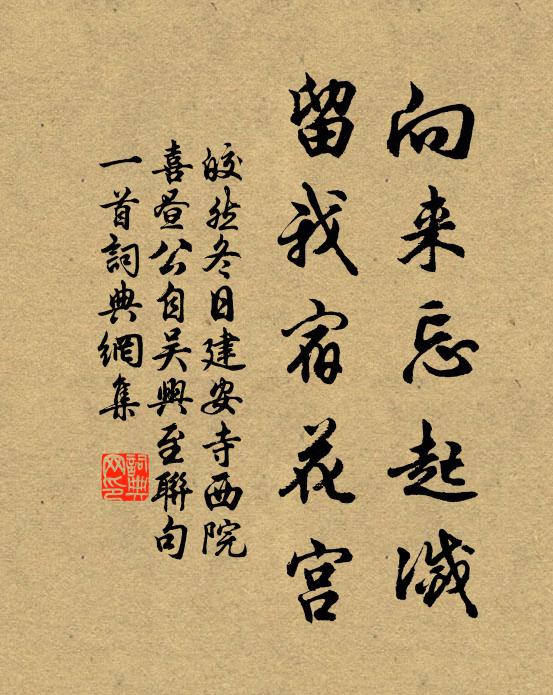 向来忘起滅
留我宿花宫
皎然冬日建安寺西院
喜昼公自吴興至聯句
一首詞典網集
詞典
网印